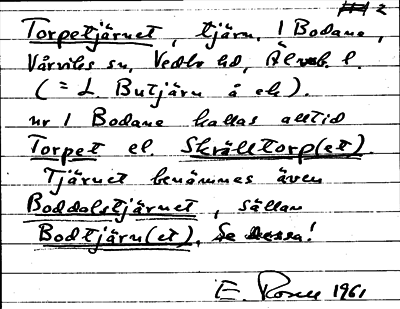 2
Torpetjärnet, tjärn, 1 Bodane,
Vårviks sn, Vedbo hd, Älvsb. l.
(= L. Butjärn å ek).
nr 1 Bodane kallas alltid
Torpet el. Skrålltorp(et).
Tjärnet benämnes även
Boddalstjärnet, sällan
Bodtjärn(et). Se dessa!
E. 1961